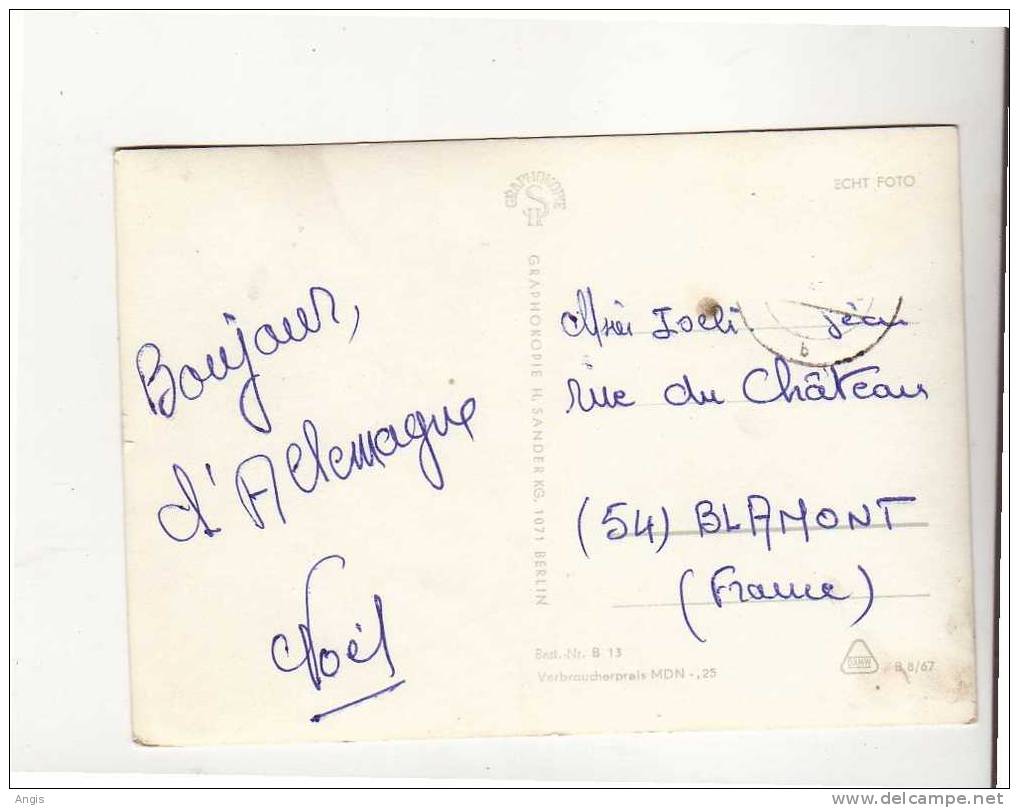 Bonjour,
d'Allemagne
Noël
GRAPHOKOPIE
H S
GRAPHOKOPIE H. SANDER KG. 1071 BERLIN
ECHT FOTO
b
rue du Château
(54) BLAMONT
(France)
Best.-Nr. B 13
Verbraucherpreis MDN -,25
DAMW
B 8/67
Angis
delcampe.net